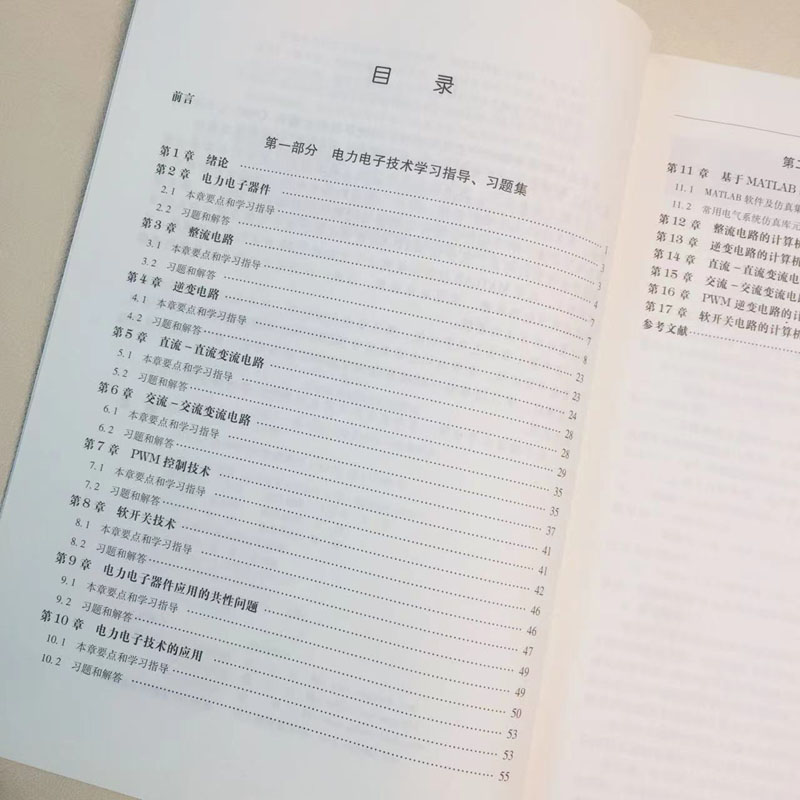 目 录
前言
第一部分 电力电子技术学习指导、习题集
第1章 绪论 …… 1
第2章 电力电子器件 …… 3
2.1 本章要点和学习指导 …… 3
2.2 习题和解答 …… 4
第3章 整流电路 …… 7
3.1 本章要点和学习指导 …… 7
3.2 习题和解答 …… 8
第4章 逆变电路 …… 23
4.1 本章要点和学习指导 …… 23
4.2 习题和解答 …… 24
第5章 直流-直流变流电路 …… 28
5.1 本章要点和学习指导 …… 28
5.2 习题和解答 …… 29
第6章 交流-交流变流电路 …… 35
6.1 本章要点和学习指导 …… 35
6.2 习题和解答 …… 37
第7章 PWM控制技术 …… 41
7.1 本章要点和学习指导 …… 41
7.2 习题和解答 …… 42
第8章 软开关技术 …… 46
8.1 本章要点和学习指导 …… 46
8.2 习题和解答 …… 47
第9章 电力电子器件应用的共性问题 …… 49
9.1 本章要点和学习指导 …… 49
9.2 习题和解答 …… 50
第10章 电力电子技术的应用 …… 53
10.1 本章要点和学习指导 …… 53
10.2 习题和解答 …… 55
第二
第11章 基于MATLAB
11.1 MATLAB软件及仿真集
11.2 常用电气系统仿真库元
第12章 整流电路的计算机
第13章 逆变电路的计算机
第14章 直流-直流变流电
第15章 交流-交流变流电
第16章 PWM逆变电路的计
第17章 软开关电路的计算机
参考文献……